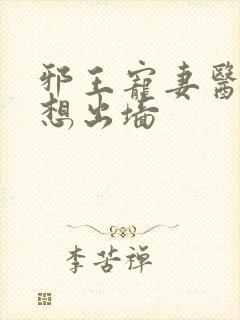 邪王寵妻醫
想出墙
李苦禅